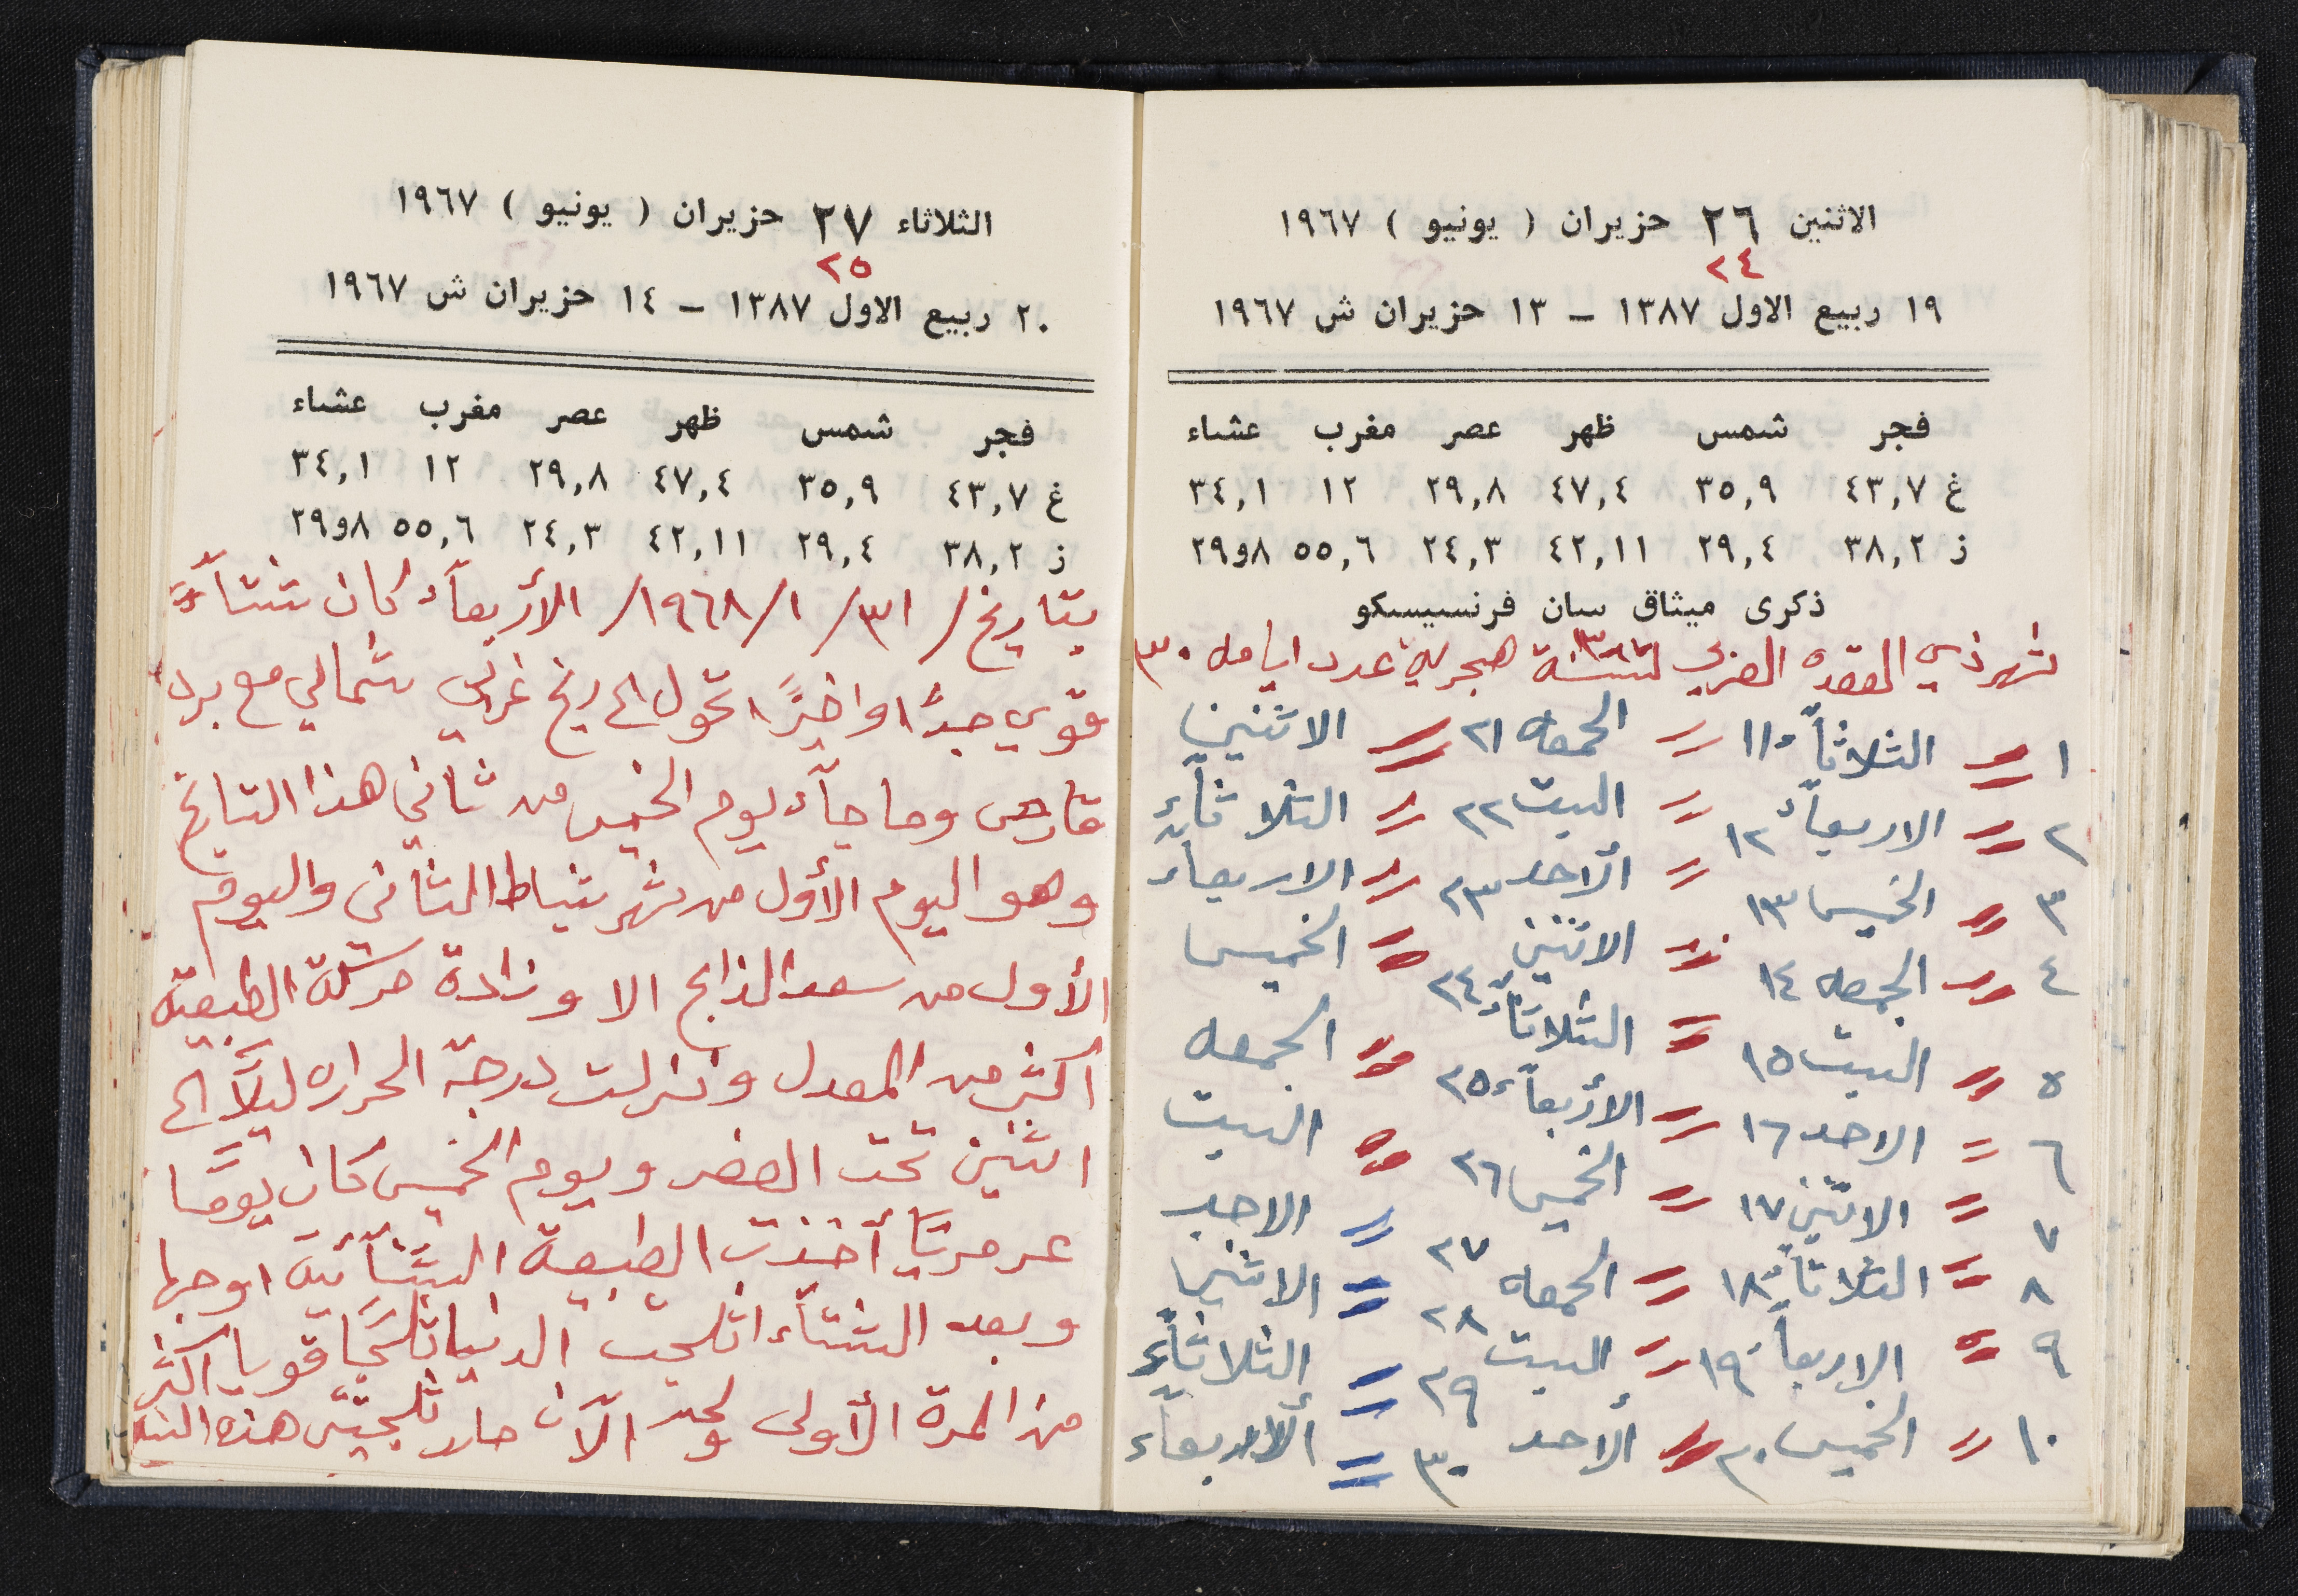 الاثنين ٢٦ حزيران ( يونيو ) ١٩٦٧
٢٤
١٩ ربيع الاول ١٣٨٧ – ١٣ حزيران ش ١٩٦٧
فجر شمس ظهر عصر مغرب عشاء
غ ٤٣,٧ ٣٥,٩ ٤٧,٤ ٢٩,٨ ١٢ ٣٤,١
ز ٣٨,٢ ٢٩,٤ ٤٢,١١ ٢٤,٣ ٥٥,٦ ٨و٢٩
ذكرى ميثاق سان فرنسيسكو
شهر ذي القعده العربي لسنة هجرية عدد ايامه ٣٠
١ = الثلاثآء ١١ = الجمعه ٢١ = الاثنين
٢ = الاربعآء ١٢ = السبت ٢٢ = الثلاثآء
٣ = الخميس ١٣ = ألاحد ٢٣ = الاربعآء
٤ = الجمعه ١٤ = الاثنين ٢٤ = الخميس
٥ = السبت ١٥ = الثلاثآء ٢٥ = الجمعه
٦ = الاحد ١٦ = الأربعآء ٢٦ = السبت
٧ = الاثنين ١٧ = الخميس ٢٧ = الاحد
٨ = الثلاثآء ١٨ = الجمعه ٢٨ = الاثنين
٩ = الاربعآء ١٩ = السبت ٢٩ = الثلاثآء
١٠ = الخميس ٢٠ = ألاحد ٣٠ = ألاربعآء
الثلاثاء ٢٧ حزيران ( يونيو ) ١٩٦٧
٢٥
٢٠ ربيع الاول ١٣٨٧ – ١٤ حزيران ش ١٩٦٧
فجر شمس ظهر عصر مغرب عشاء
غ ٤٣,٧ ٣٥,٩ ٤٧,٤ ٢٩,٨ ١٢ ٣٤,١
ز ٣٨,٢ ٢٩,٤ ٤٢,١١ ٢٤,٣ ٥٥,٦ ٨و٢٩
بتاريخ / ٣١/ ١/ ١٩٦٨/ الأربعآء كان شتآءً
قوي جدًا واخيرًا تحول الى ريح غربي شمالي مع برد
قارص وما جآء يوم الخميس من ثاني هذا التايخ
وهو اليوم الأول من شهر شباط الثاني واليوم
الأول من سعد الذابح الا وزادة الطبيعة
أكثر من المعدل ونزلت درجة الحراره ليلاً الى
اثنين تحت الصفر ويوم الخميس كان يومًا
أخذت الطبيعة الشتآئية اوجها
وبعد الشتآء اثلجت الدنيا ثلجًا قويا اكثر
من المرة الأولى ولحد الآن صار ثلجتين هذه السنه